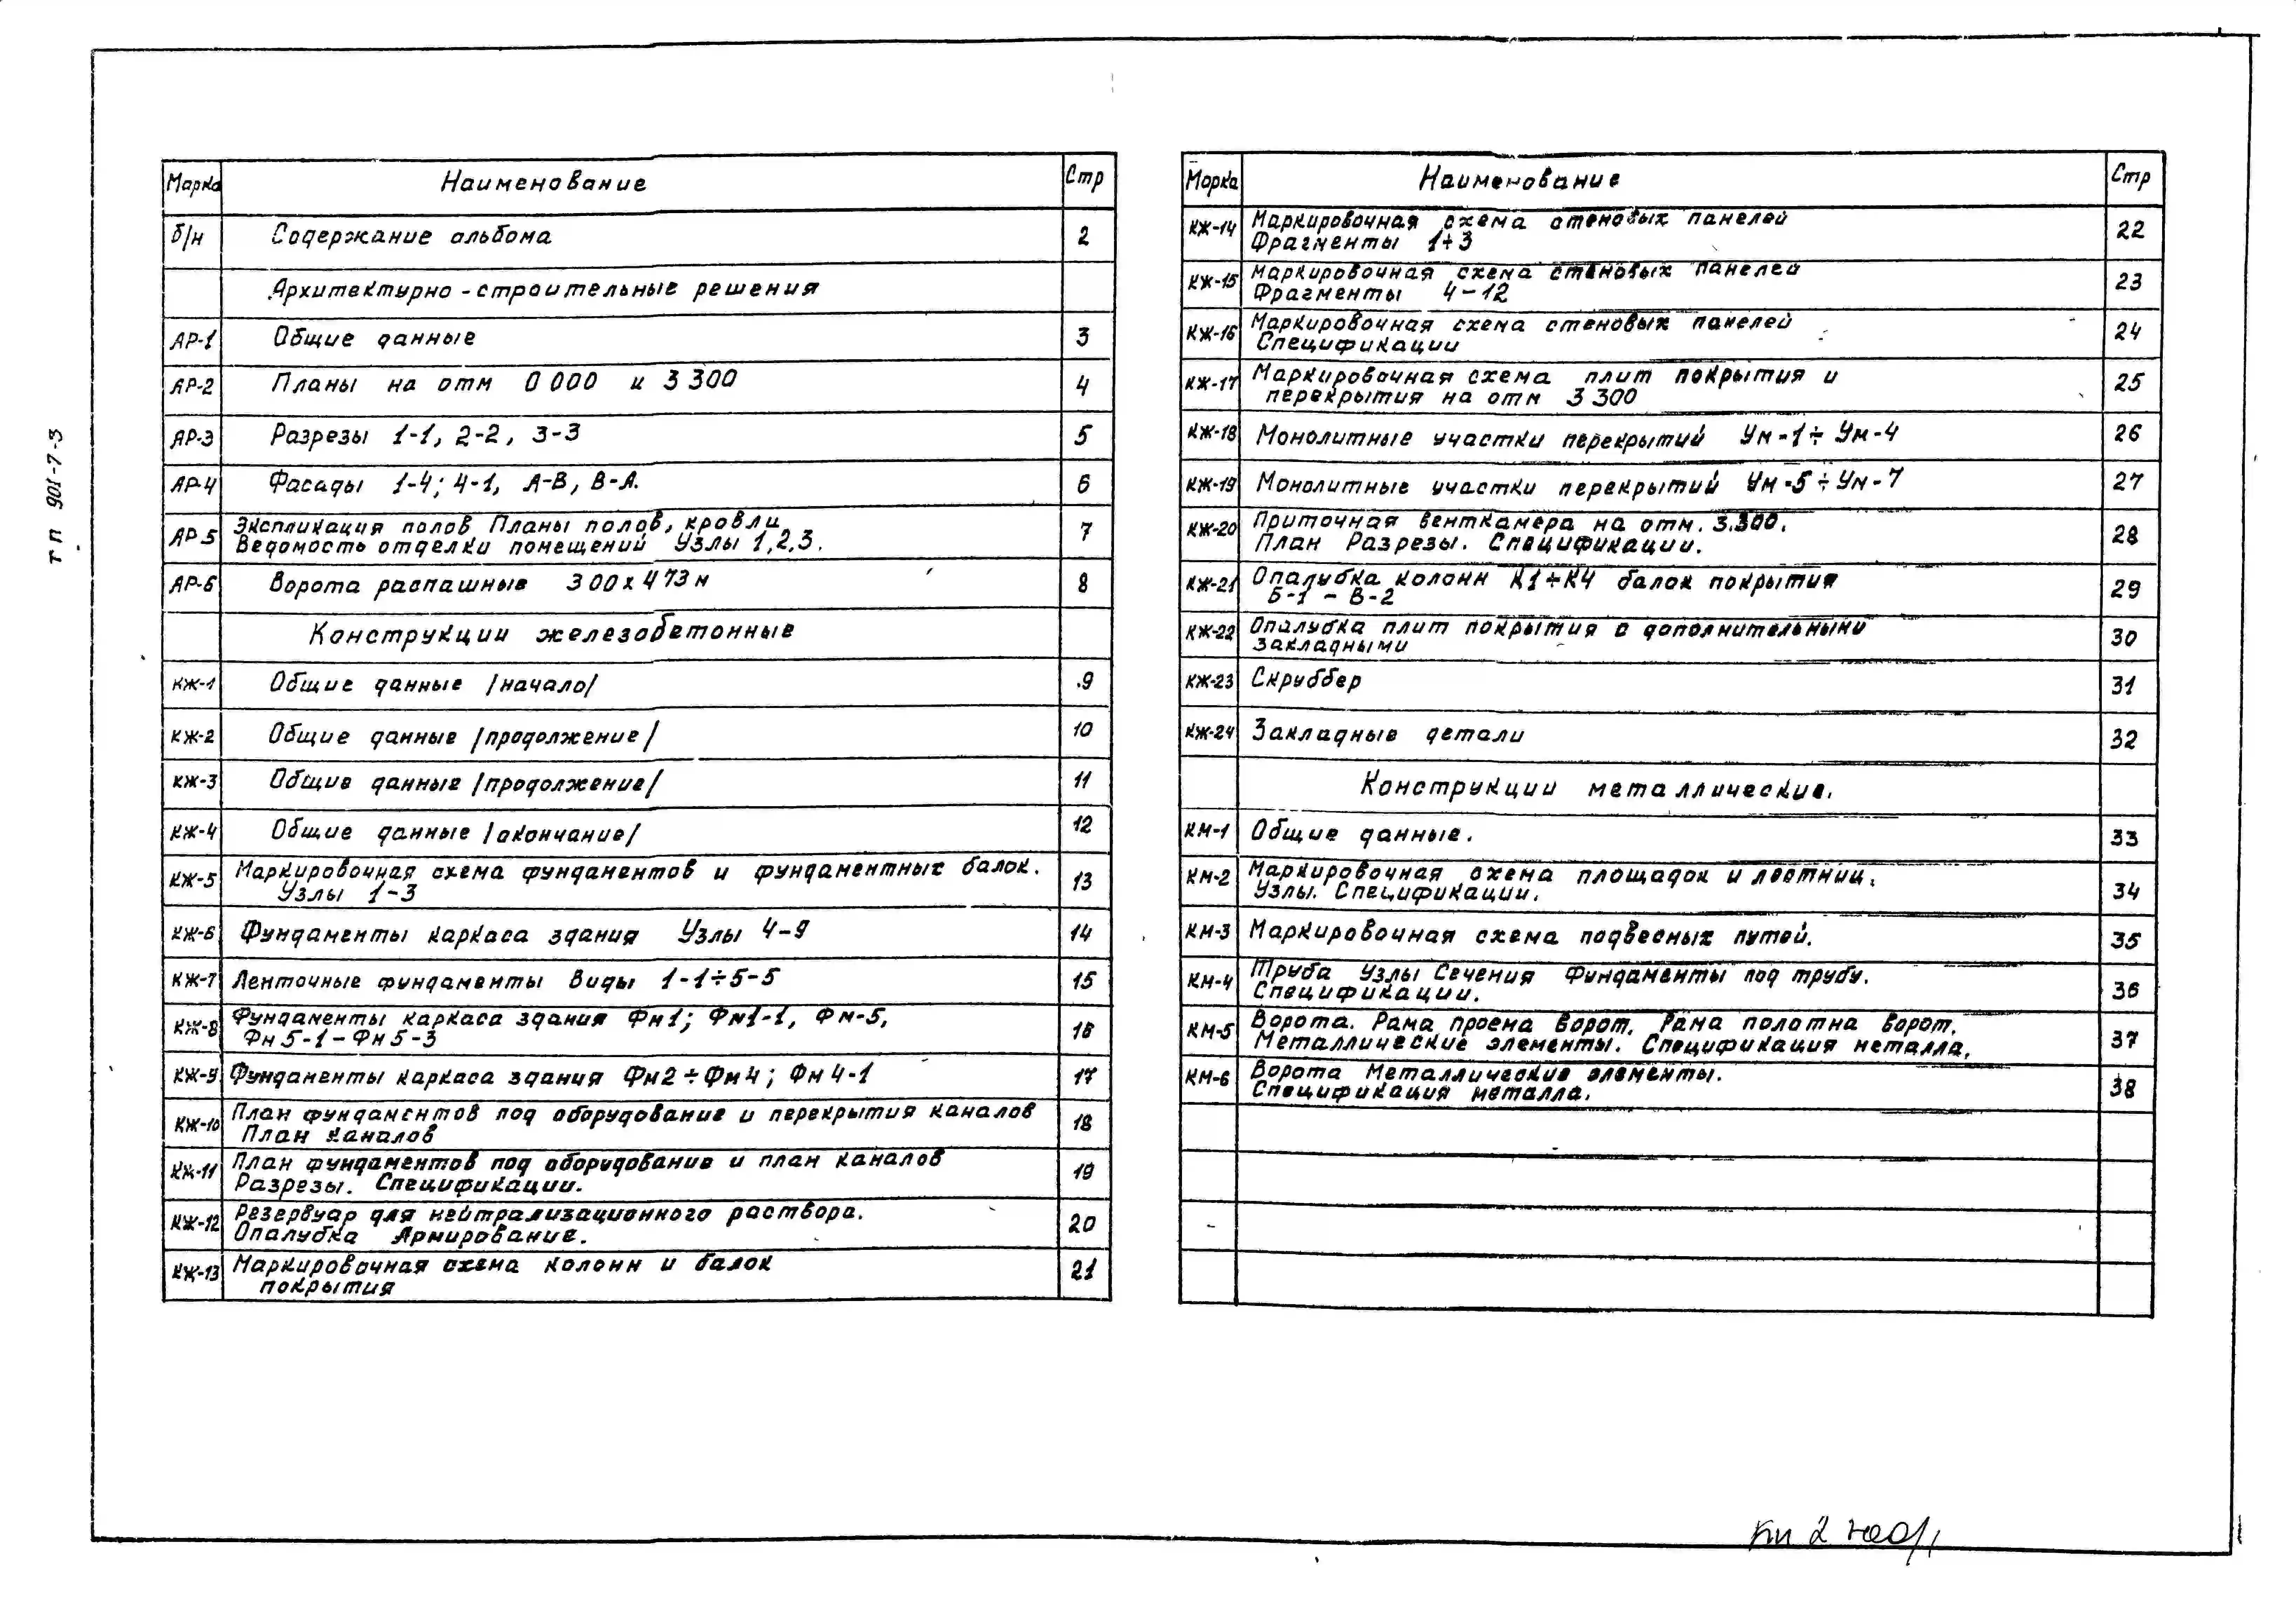 ТП 901-7-3
Марка Наименование Стр
б/н Содержание альбома 2
Архитектурно-строительные решения
АР-1 Общие данные 3
АР-2 Планы на отм 0 000 и 3 300 4
АР-3 Разрезы 1-1, 2-2, 3-3 5
АР-4 Фасады 1-4; 4-1, А-В, В-А. 6
АР-5 Экспликация полов Планы полов, кровли 7
Ведомость отделки помещений Узлы 1,2,3.
АР-6 Ворота распашные 3 00х4 73м 8
Конструкции железобетонные
КЖ-1 Общие данные /начало/ 9
КЖ-2 Общие данные /продолжение/ 10
КЖ-3 Общие данные /продолжение/ 11
КЖ-4 Общие данные /окончание/ 12
КЖ-5 Маркировочная схема фундаментов и фундаментных балок. 13
Узлы 1-3
КЖ-6 Фундаменты каркаса здания Узлы 4-9 14
КЖ-7 Ленточные фундаменты Виды 1-1÷5-5 15
КЖ-8 Фундаменты каркаса здания Фм1; Фм1-1, Фм-5, 16
Фм5-1-Фм5-3
КЖ-9 Фундаменты каркаса здания Фм2÷Фм4; Фм4-1 17
КЖ-10 План фундаментов под оборудование и перекрытия каналов 18
План каналов
КЖ-11 План фундаментов под оборудование и план каналов 19
Разрезы. Спецификации.
КЖ-12 Резервуар для нейтрализационного раствора. 20
Опалубка Армирование.
КЖ-13 Маркировочная схема колонн и балок 21
покрытия
Марка Наименование Стр
КЖ-14 Маркировочная схема стеновых панелей 22
Фрагменты 1÷3
КЖ-15 Маркировочная схема стеновых панелей 23
Фрагменты 4-12
КЖ-16 Маркировочная схема стеновых панелей 24
Спецификации
КЖ-17 Маркировочная схема плит покрытия и 25
перекрытия на отм 3 300
КЖ-18 Монолитные участки перекрытий Ум-1÷Ум-4 26
КЖ-19 Монолитные участки перекрытий Ум-5÷Ум-7 27
КЖ-20 Приточная венткамера на отм. 3.300. 28
План Разрезы. Спецификации.
КЖ-21 Опалубка колонн К1÷К4 балок покрытия 29
Б-1 - В-2
КЖ-22 Опалубка плит покрытия с дополнительными 30
закладными
КЖ-23 Скруббер 31
КЖ-24 Закладные детали 32
Конструкции металлические.
КМ-1 Общие данные. 33
КМ-2 Маркировочная схема площадок и лестниц. 34
Узлы. Спецификации.
КМ-3 Маркировочная схема подвесных путей. 35
КМ-4 Труба Узлы Сечения Фундаменты под трубу. 36
Спецификации.
КМ-5 Ворота. Рама проема ворот. Рама полотна ворот. 37
Металлические элементы. Спецификация металла.
КМ-6 Ворота Металлические элементы. 38
Спецификация металла.